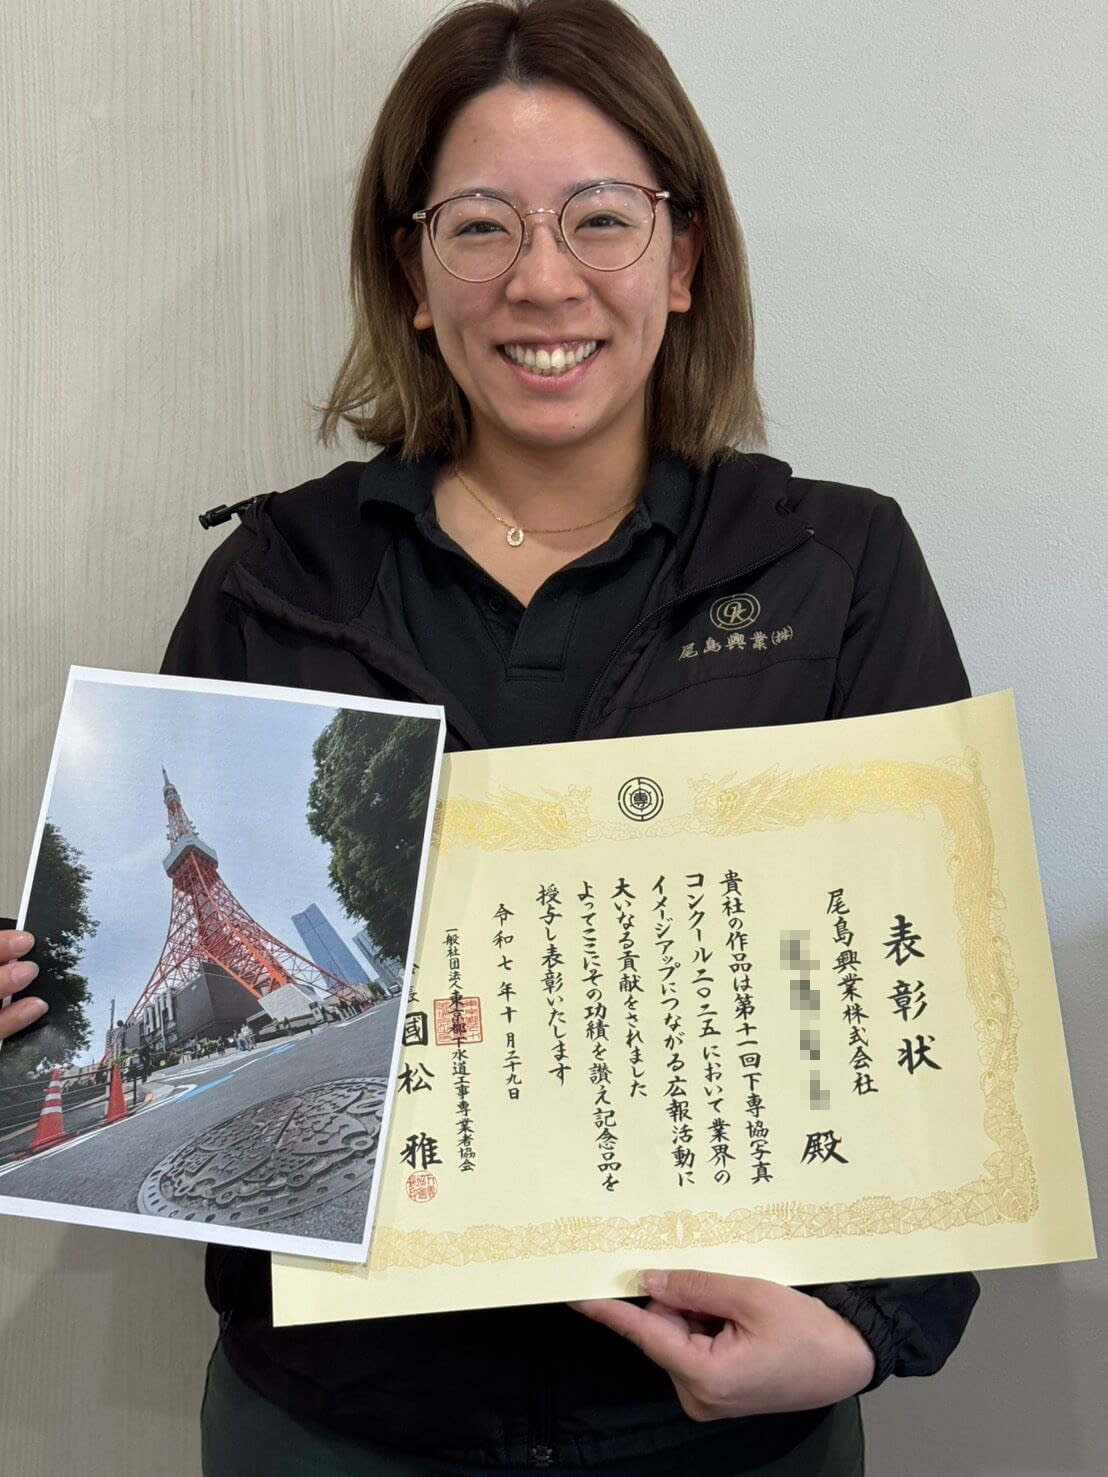 尾島興業㈱
表彰状
尾島興業株式会社
殿
貴社の作品は第十一回下専協写真
コンクール二〇二五において業界の
イメージアップにつながる広報活動に
大いなる貢献をされました
よってここにその功績を讃え記念品を
授与し表彰いたします
令和七年十月二十九日
一般社団法人東京都下水道工事専業者協会
会長 國松 雅